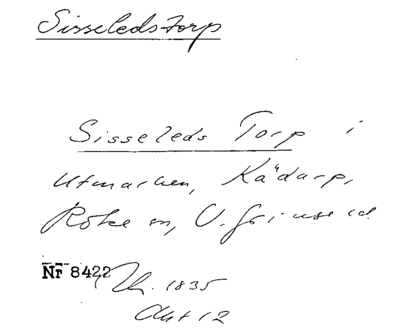 Sisseledstorp
Sisseleds Torp i
Utmarken, Kädarp,
Röke sn, V. Göinge hd.
Nr 8422 Lh. 1835
Akt 12